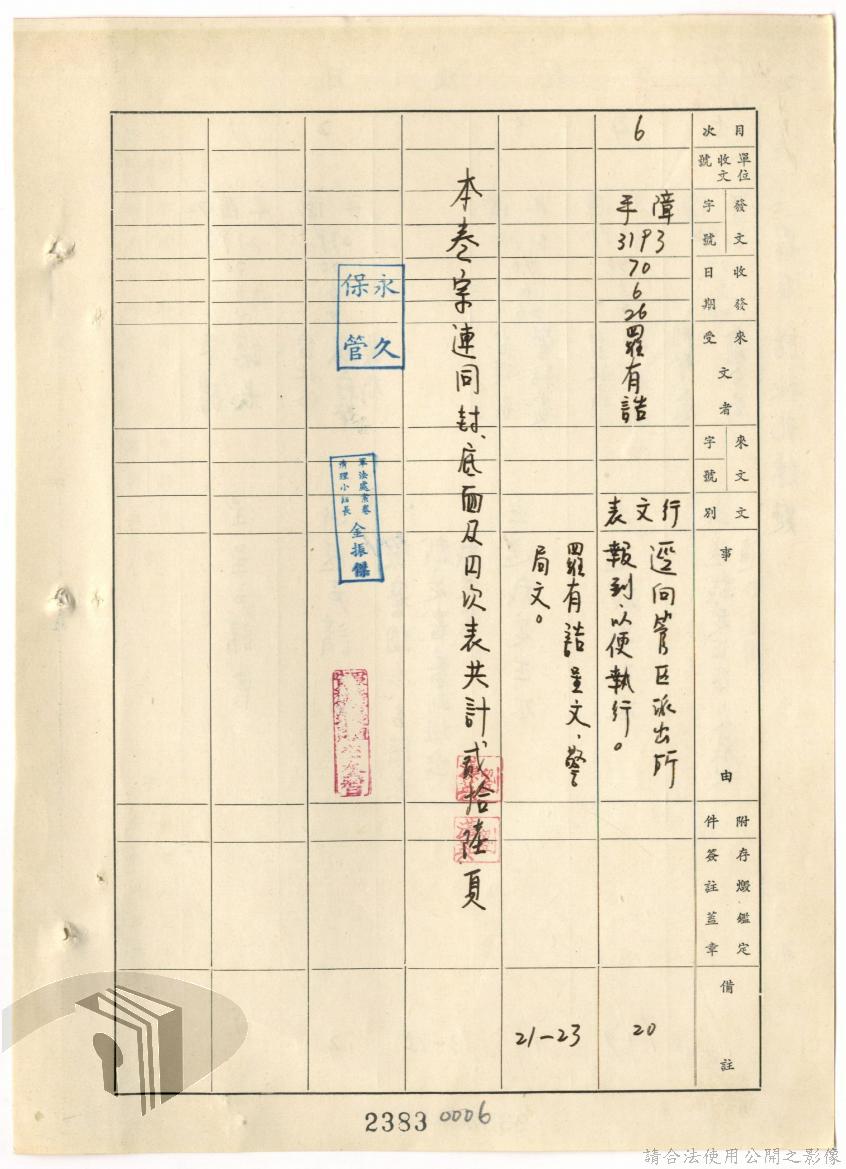 目次
單位收文號
發文字號
收發日期
來受文者
來文字號
文別
事由
附件
存燬鑑定簽註蓋章
備註
6
障
平
3193
70
6
26
羅有誥
行文表
逕向管區派出所
報到以便執行。
20
羅有誥呈文、警
局文。
21-23
本卷宗連同封、底面及目次表共計貳拾陸頁
永久
保管
軍法處案卷
清理小組長
金振傑
2383 0006
請合法使用公開之影像